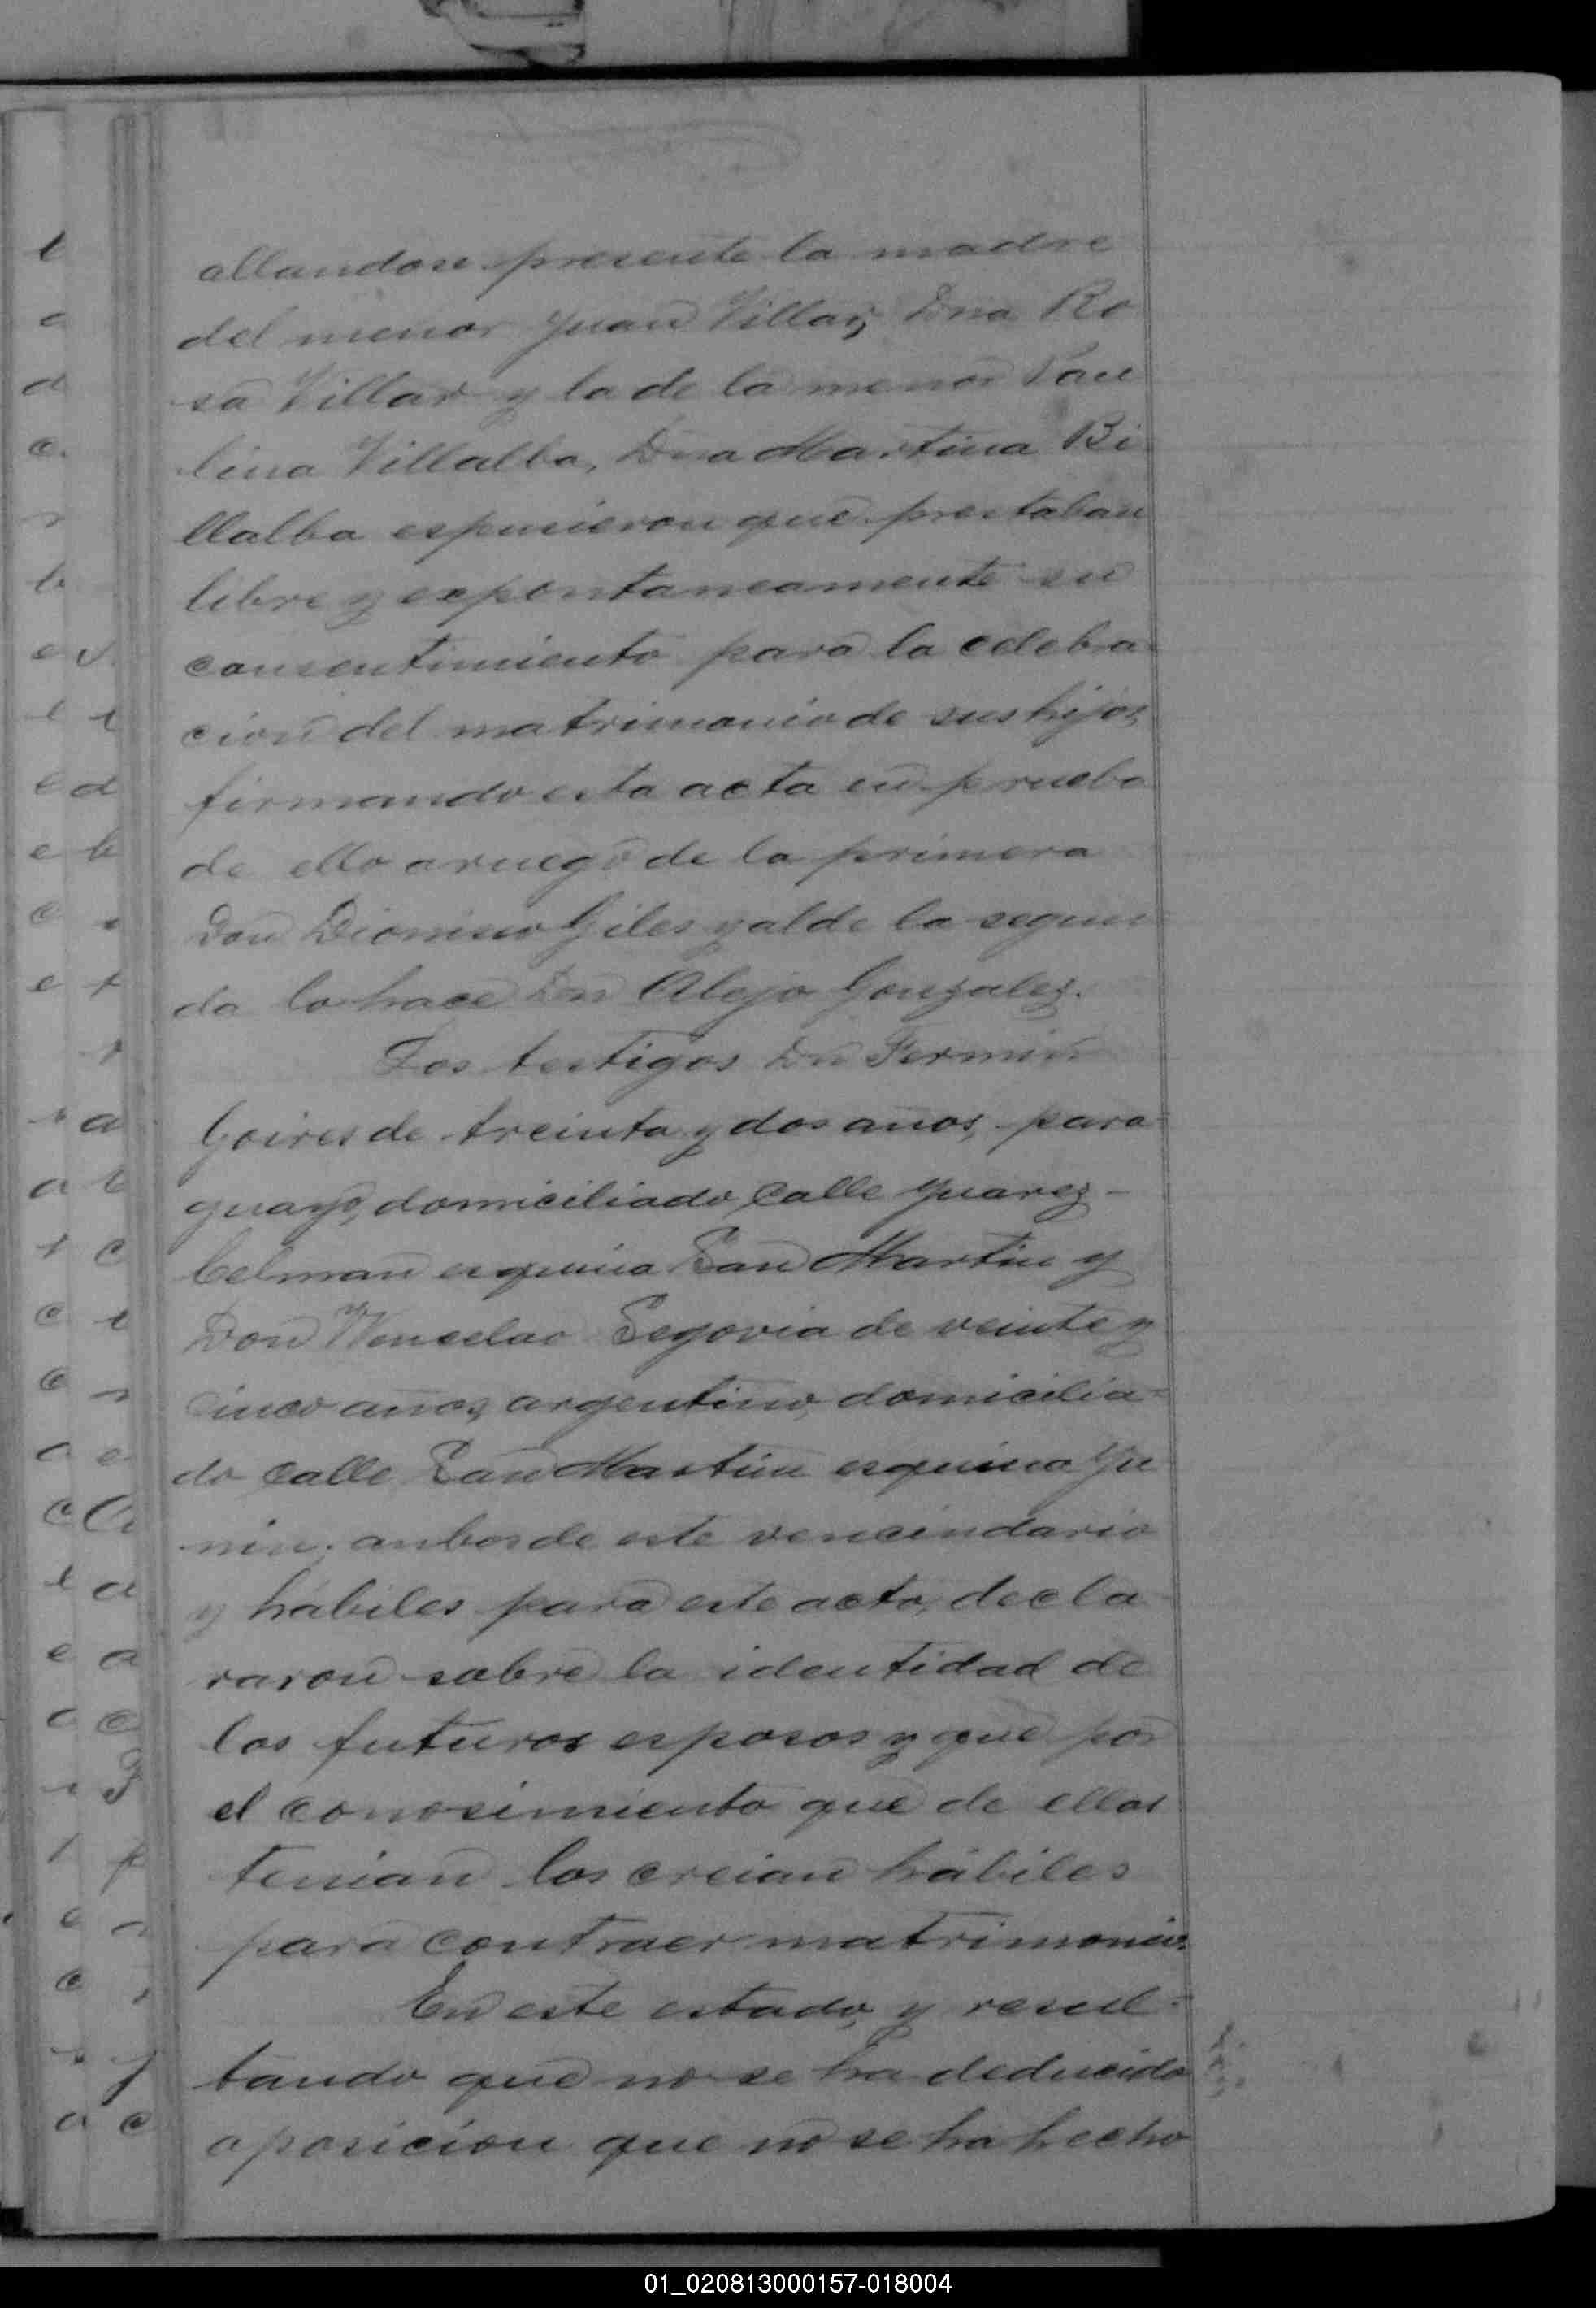 allandose presente la madre
del menor Juan Villar, Dna Ro
sa Villar y la de la menor Pau
lina Villalba, Dna Martina Bi
llalba espusieron que prestaban
libre y expontaneamente su
consentimiento para la celebra
cion del matrimonio de sus hijos,
firmando esta acta en prueba
de ello a ruego de la primera
Don Dionisio Giles y al de la segun=
da lo hace Dn Alejo Gonzalez.
Los testigos Dn Fermin
Goires de treinta y dos años, para=
guayo, domiciliado calle Juarez-
Celman esquina San Martin y
Don Wenselao Segovia de veinte y
cinco años, argentino, domicilia=
do calle San Martin esquina Ju
nin; anbos de este vencindario
y hábiles para este acto, decla
raron sobre la identidad de
los futuros esposos y que por
el conosimiento que de ellos
tenian los creian hábiles
para contraer matrimonio.
En este estado, y resul=
tando que no se ha deducido
oposicion que no se ha hecho
01_020813000157-018004